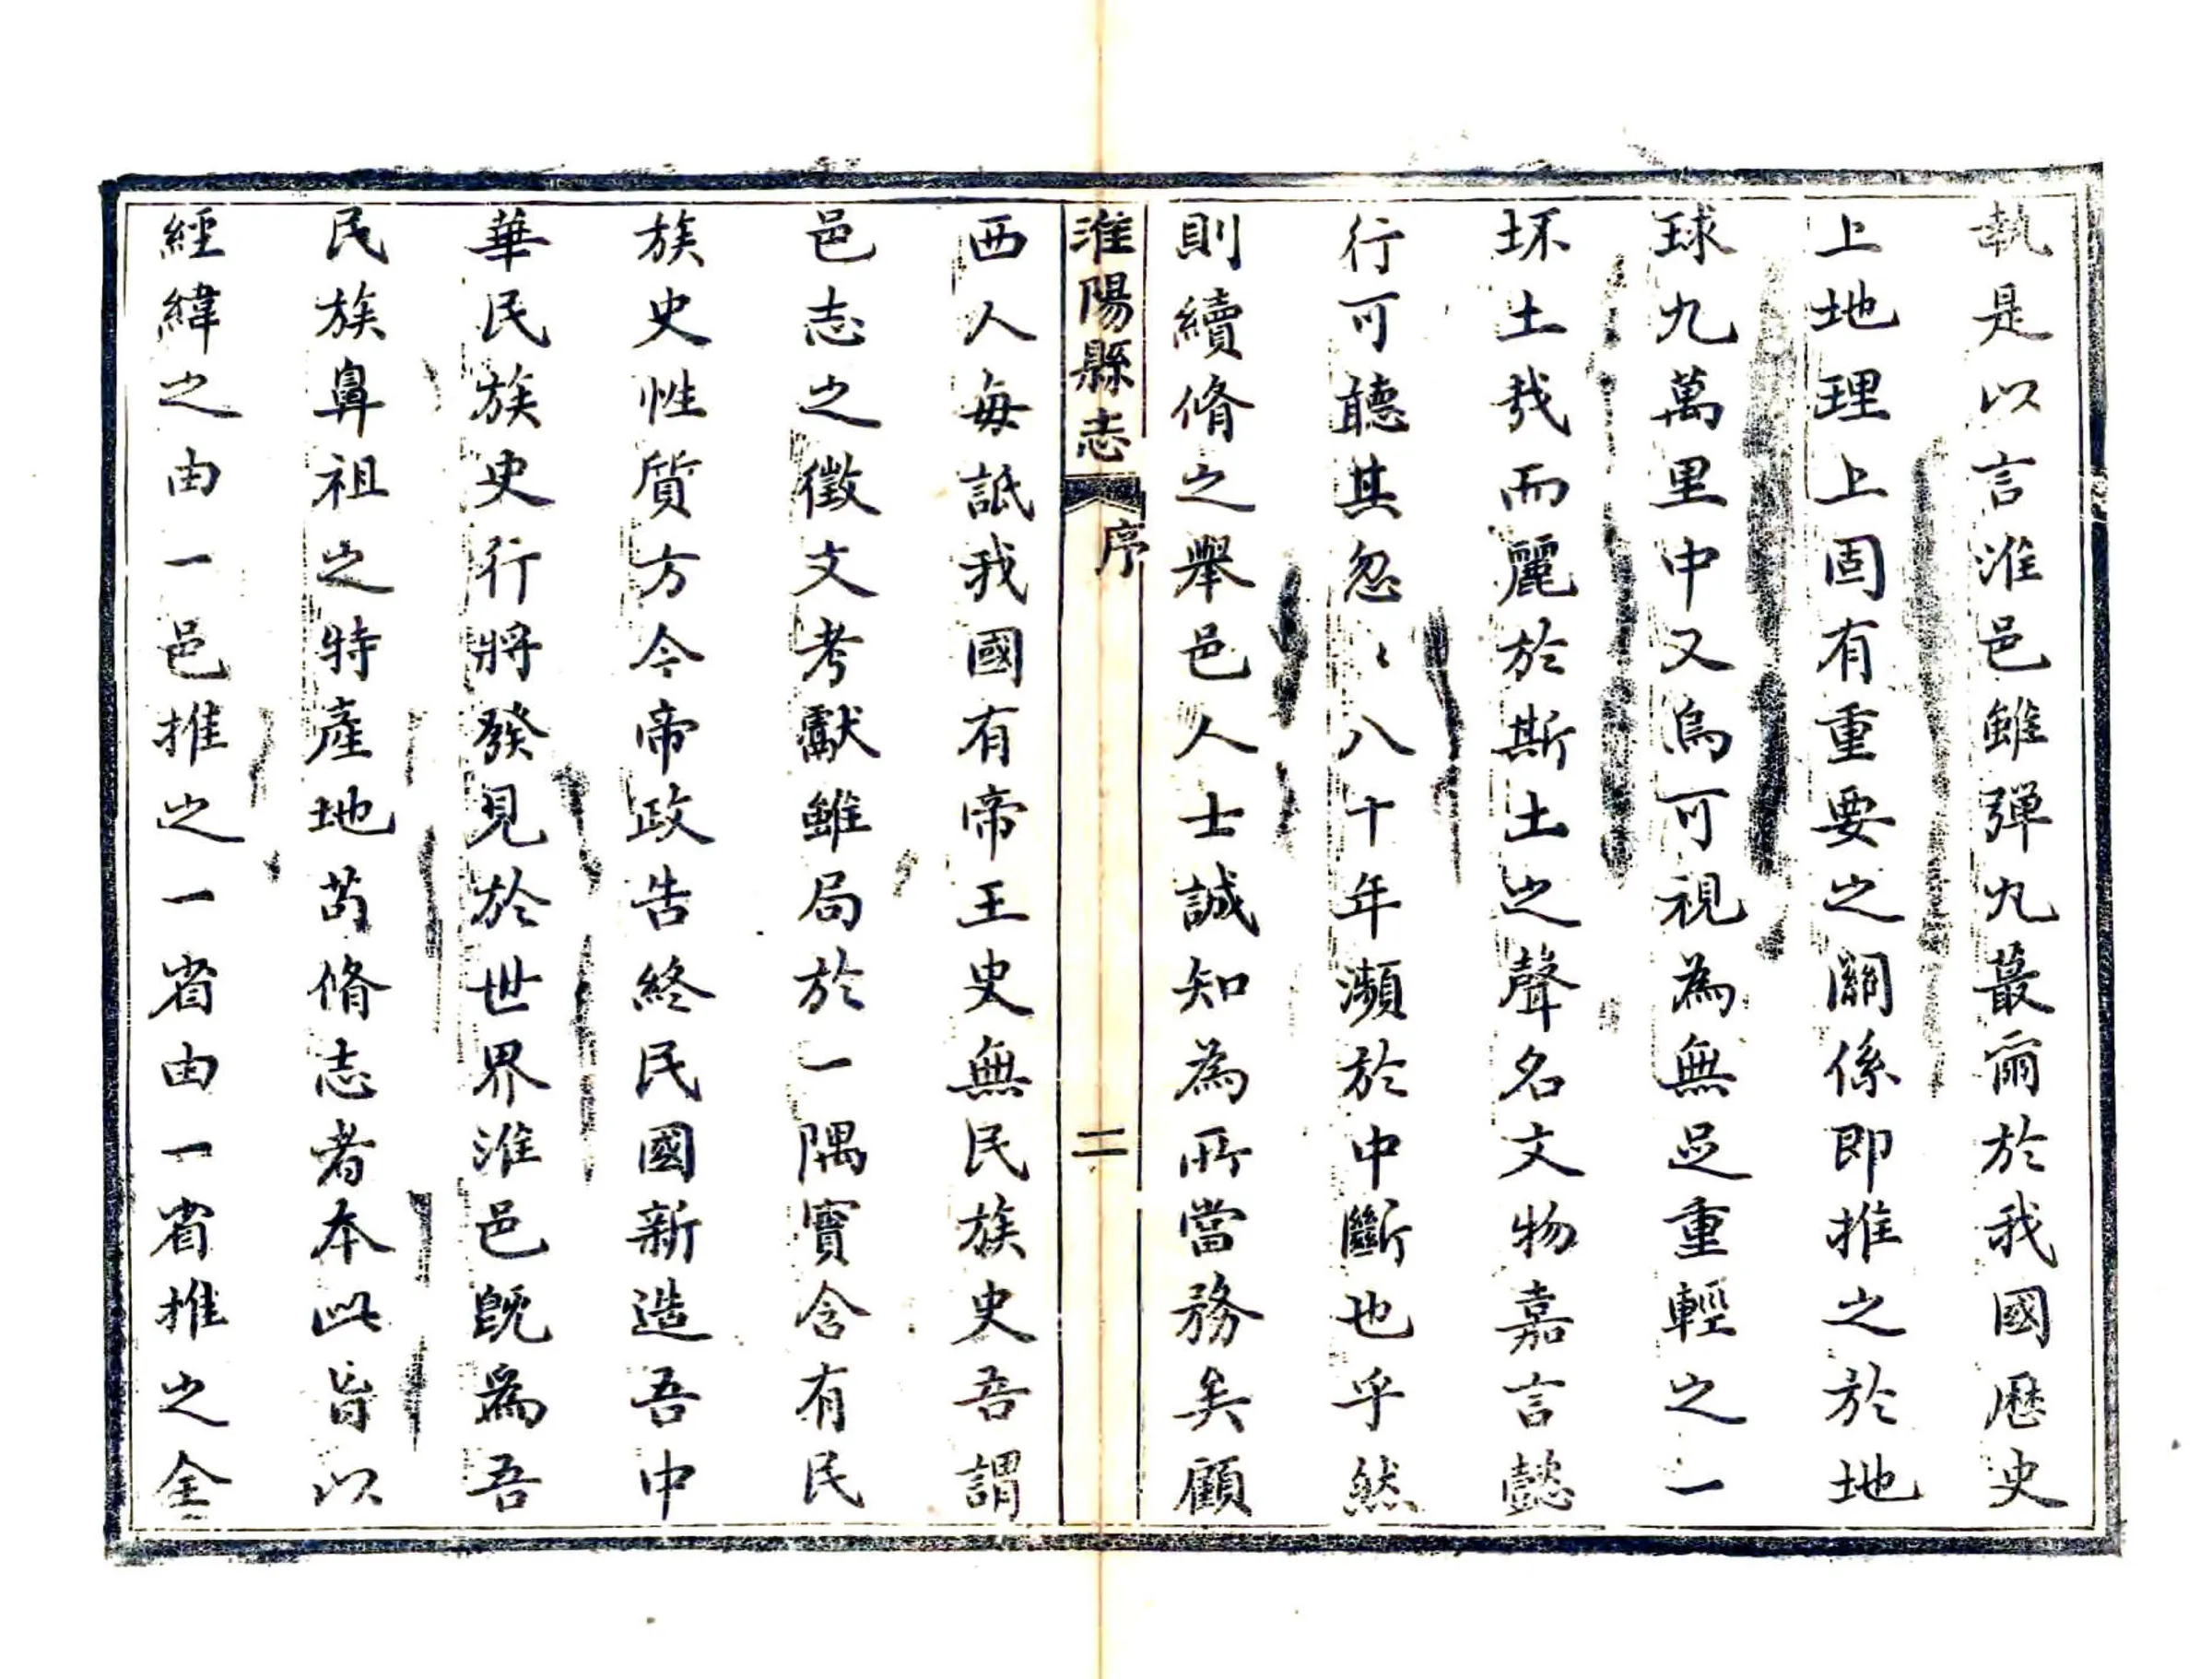 執是以言淮邑雖彈丸蕞爾於我國歷史
上地理上固有重要之關係即推之於地
球九萬里中又烏可視為無足重輕之一
坏土哉而麗於斯土之聲名文物嘉言懿
行可聽其忽〻八十年瀕於中斷也乎然
則續脩之舉邑人士誠知為所當務矣顧
淮陽縣志
序
二
西人每詆我國有帝王史無民族史吾謂
邑志之徵文考獻雖局於一隅實含有民
族史性質方今帝政告終民國新造吾中
華民族史行將發見於世界淮邑既為吾
民族鼻祖之特產地苟脩志者本此旨以
經緯之由一邑推之一省由一省推之全